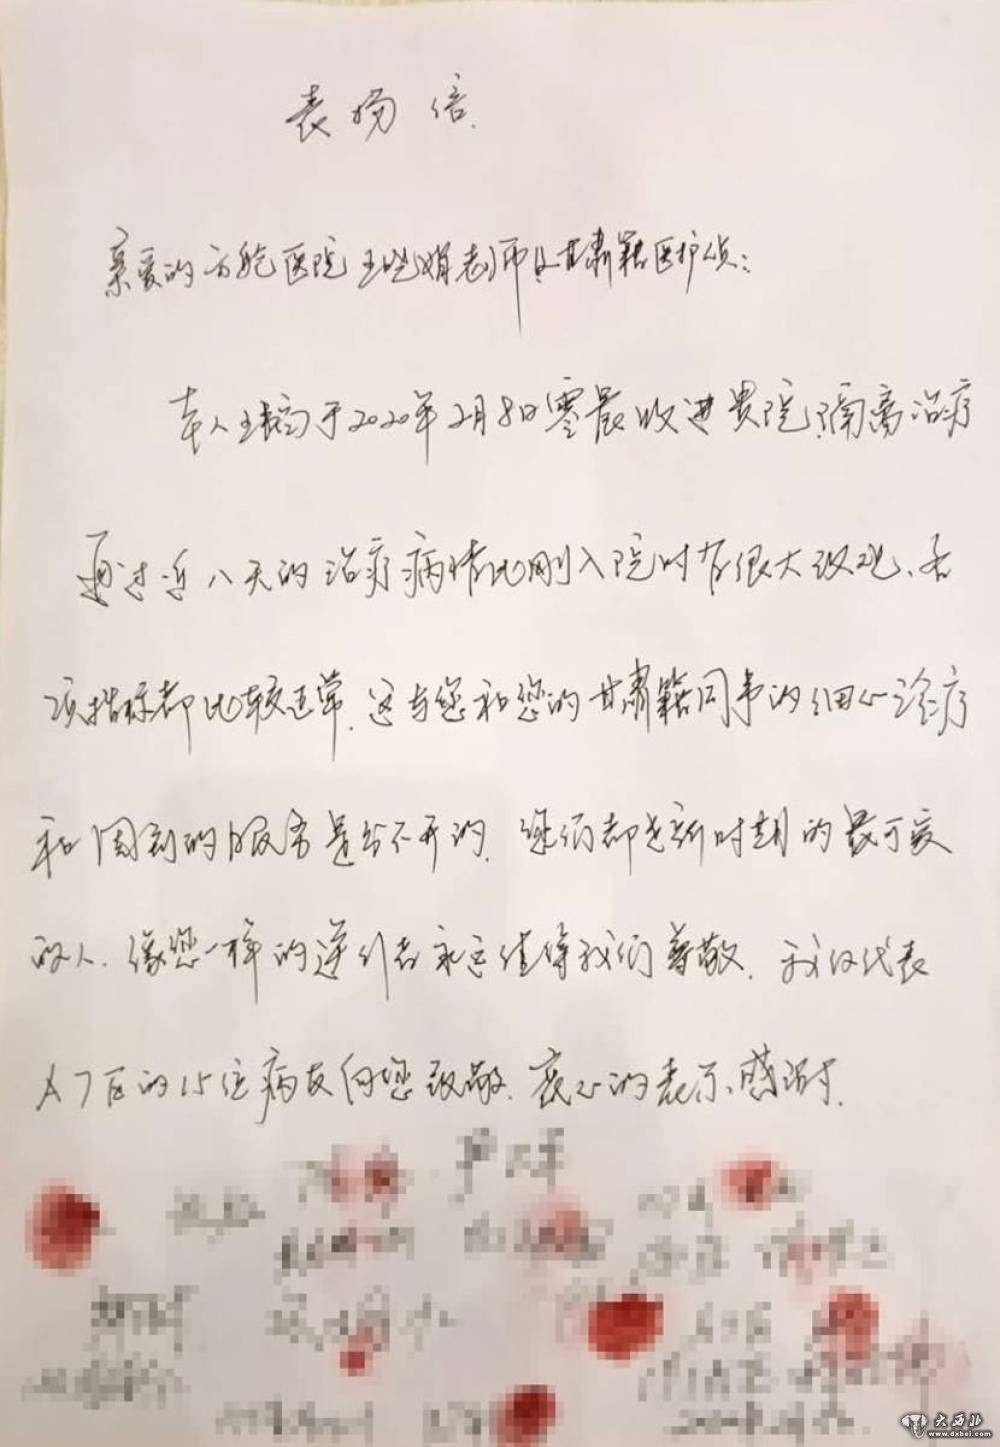 表扬信
亲爱的方舱医院王晓娟老师及甘肃籍医护人员:
本人王于2020年2月8日零晨收进贵院隔离治疗
通过近八天的治疗病情比刚入院时有很大改观、各
项指标都比较正常.这与您和您的甘肃籍同事的细心诊疗
和周到的服务是分不开的.您们都是新时期的最可爱
的人.像您一样的逆行者永远值得我们尊敬.我仅代表
A7区的15位病友向您致敬.衷心的表示感谢.
大西北
www.dxbei.com